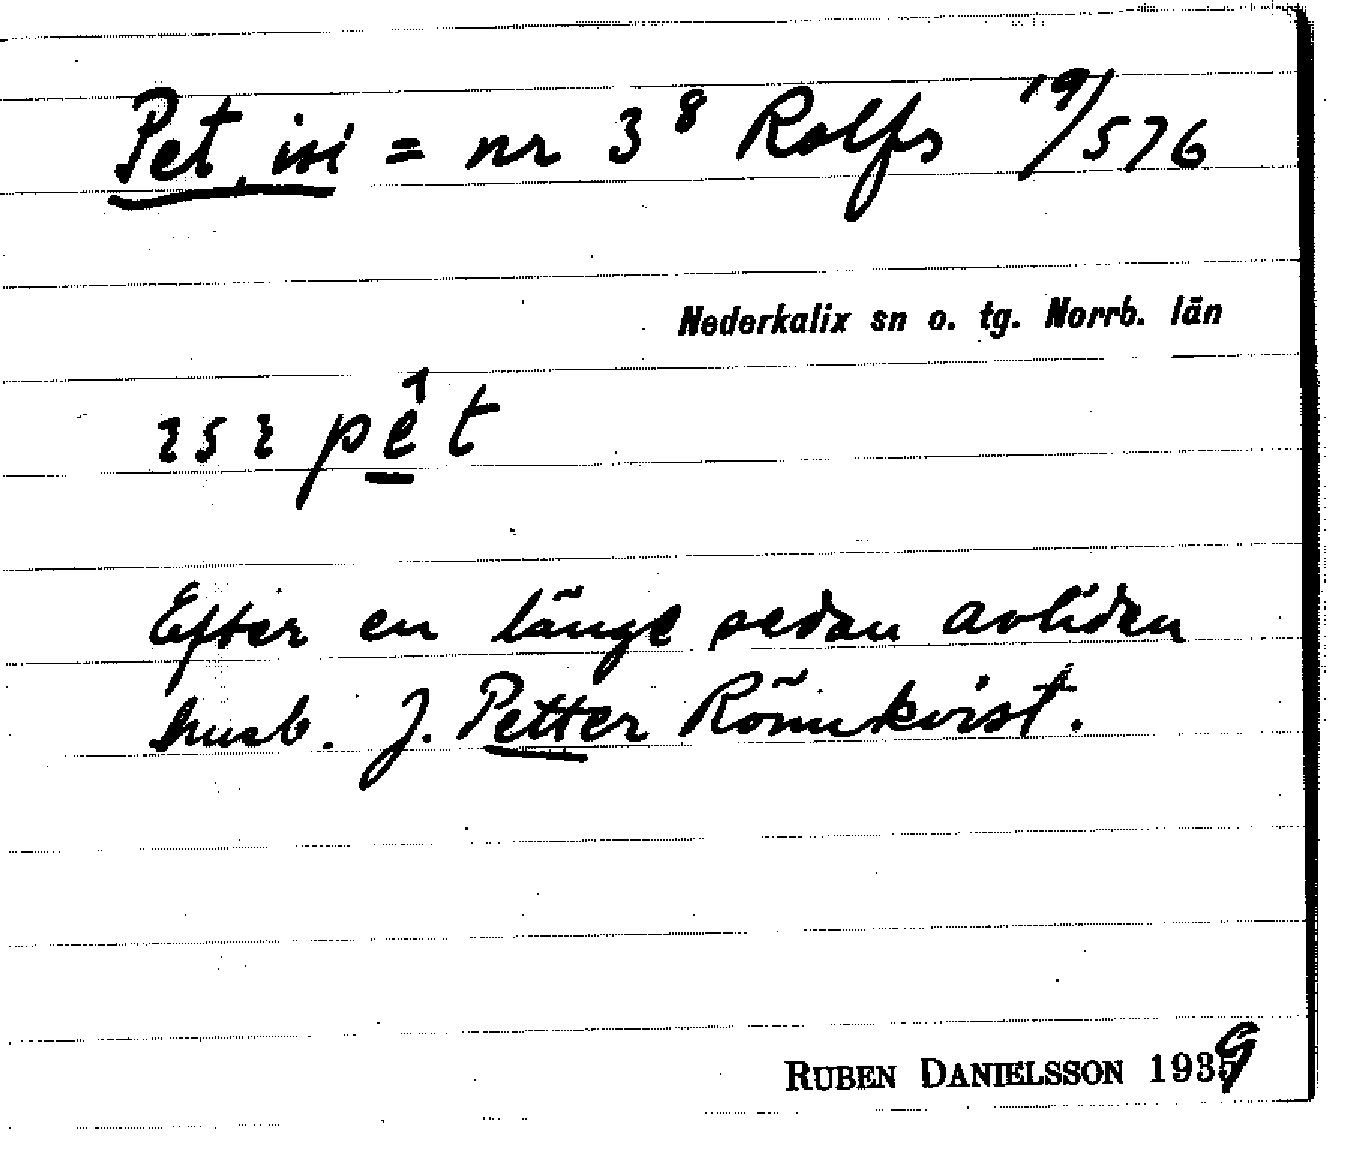 Pet, isi = nr 3⁸ Rolfs 19/576
Nederkalix sn o. tg. Norrb. län
pêt
Efter en länge sedan avliden
husb. J. Petter Rönnkvist.
RUBEN DANIELSSON 1939